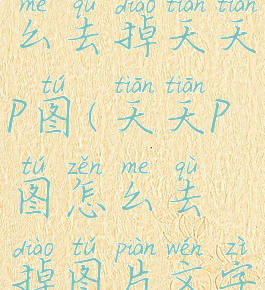 me qù diào tiān tiān
么去掉天天
tú tiān tiān
P图(天天P
tú zěn me qù
图怎么去
diào tú piàn wén zì
掉图片文字